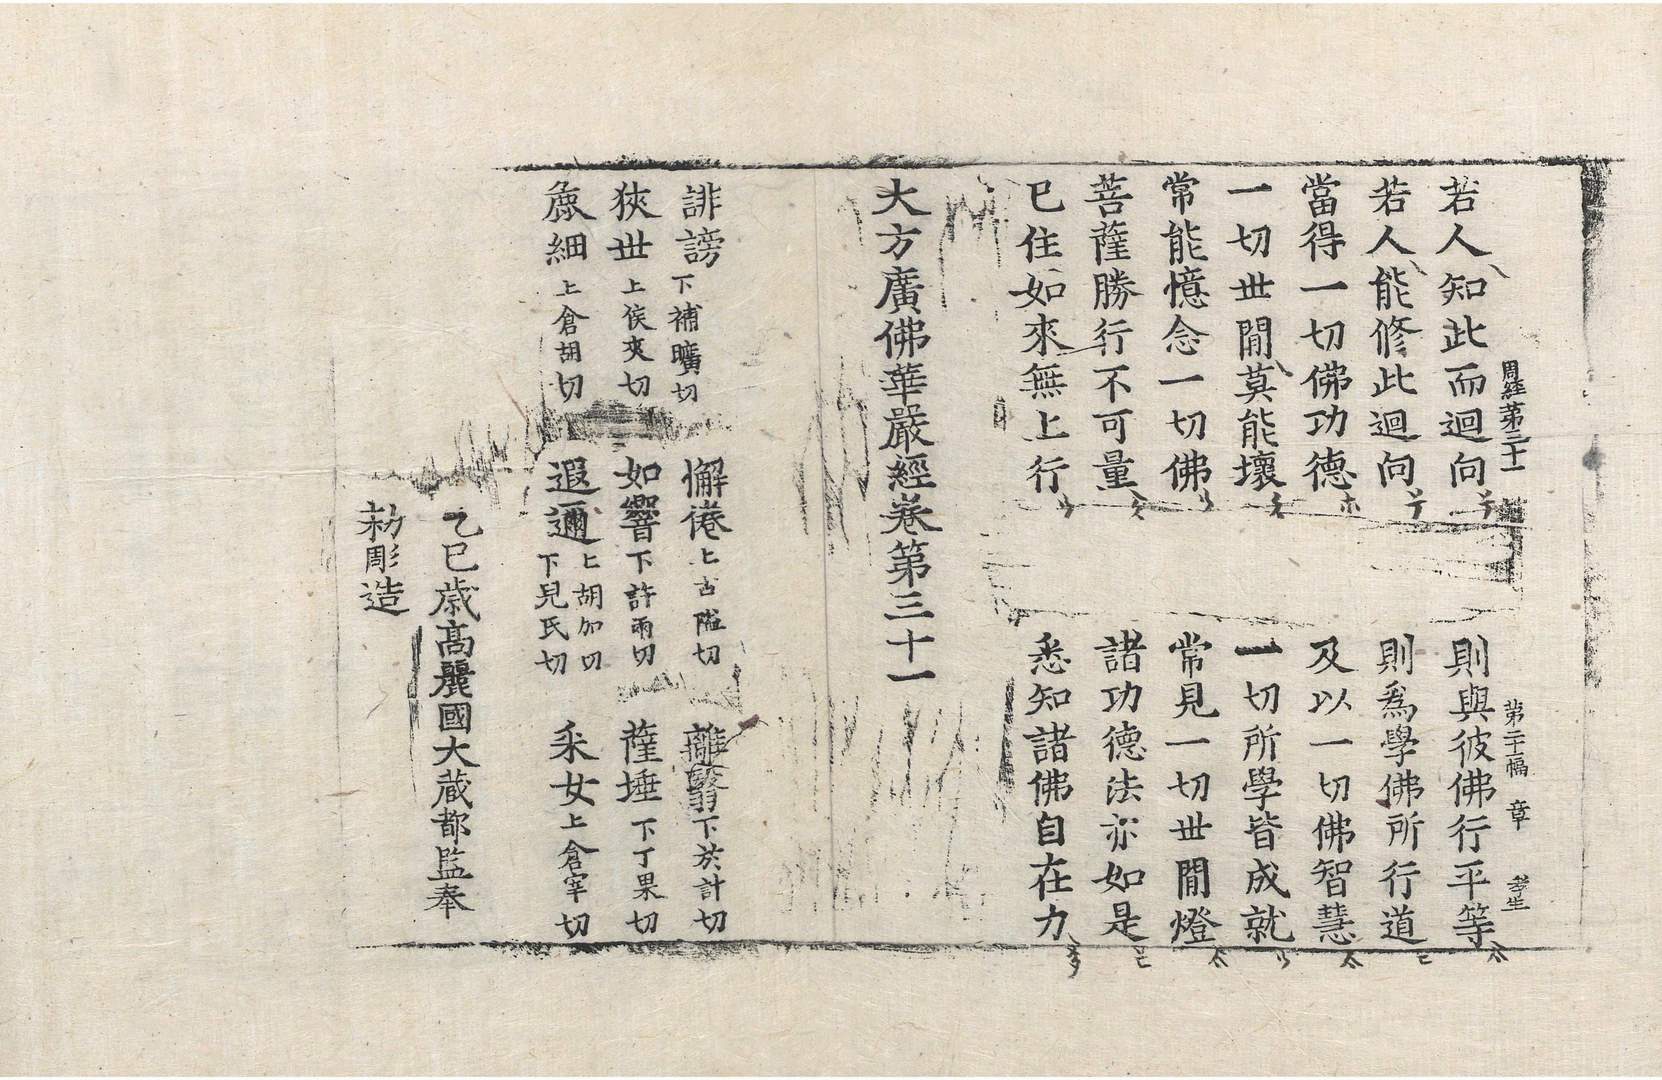 周経第三十一 第二十幅 章 孝生
若人知此而迴向 則與彼佛行平等
若人能修此迴向 則爲學佛所行道
當得一切佛功德 及以一切佛智慧
一切世閒莫能壞 一切所學皆成就
常能憶念一切佛 常見一切世閒燈
菩薩勝行不可量 諸功德法亦如是
已住如來無上行 悉知諸佛自在力
大方廣佛華嚴經卷第三十一
誹謗下補曠切 懈倦上古隘切 離翳下於計切
狹世上侯夾切 如響下許兩切 薩埵下丁果切
麁細上倉胡切 遐邇上胡加切下兒氏切 采女上倉宰切
乙巳歲高麗國大藏都監奉
勑彫造